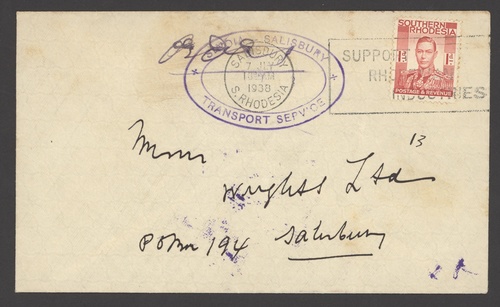 SALISBURY
TRANSPORT SERVICE
SALISBURY
1938
S. RHODESIA
SUPPORT
RH
INDUSTRIES
SOUTHERN
RHODESIA
1D 1D
POSTAGE & REVENUE
13
Messrs
Wrights Ltd
P O Box 194 Salisbury